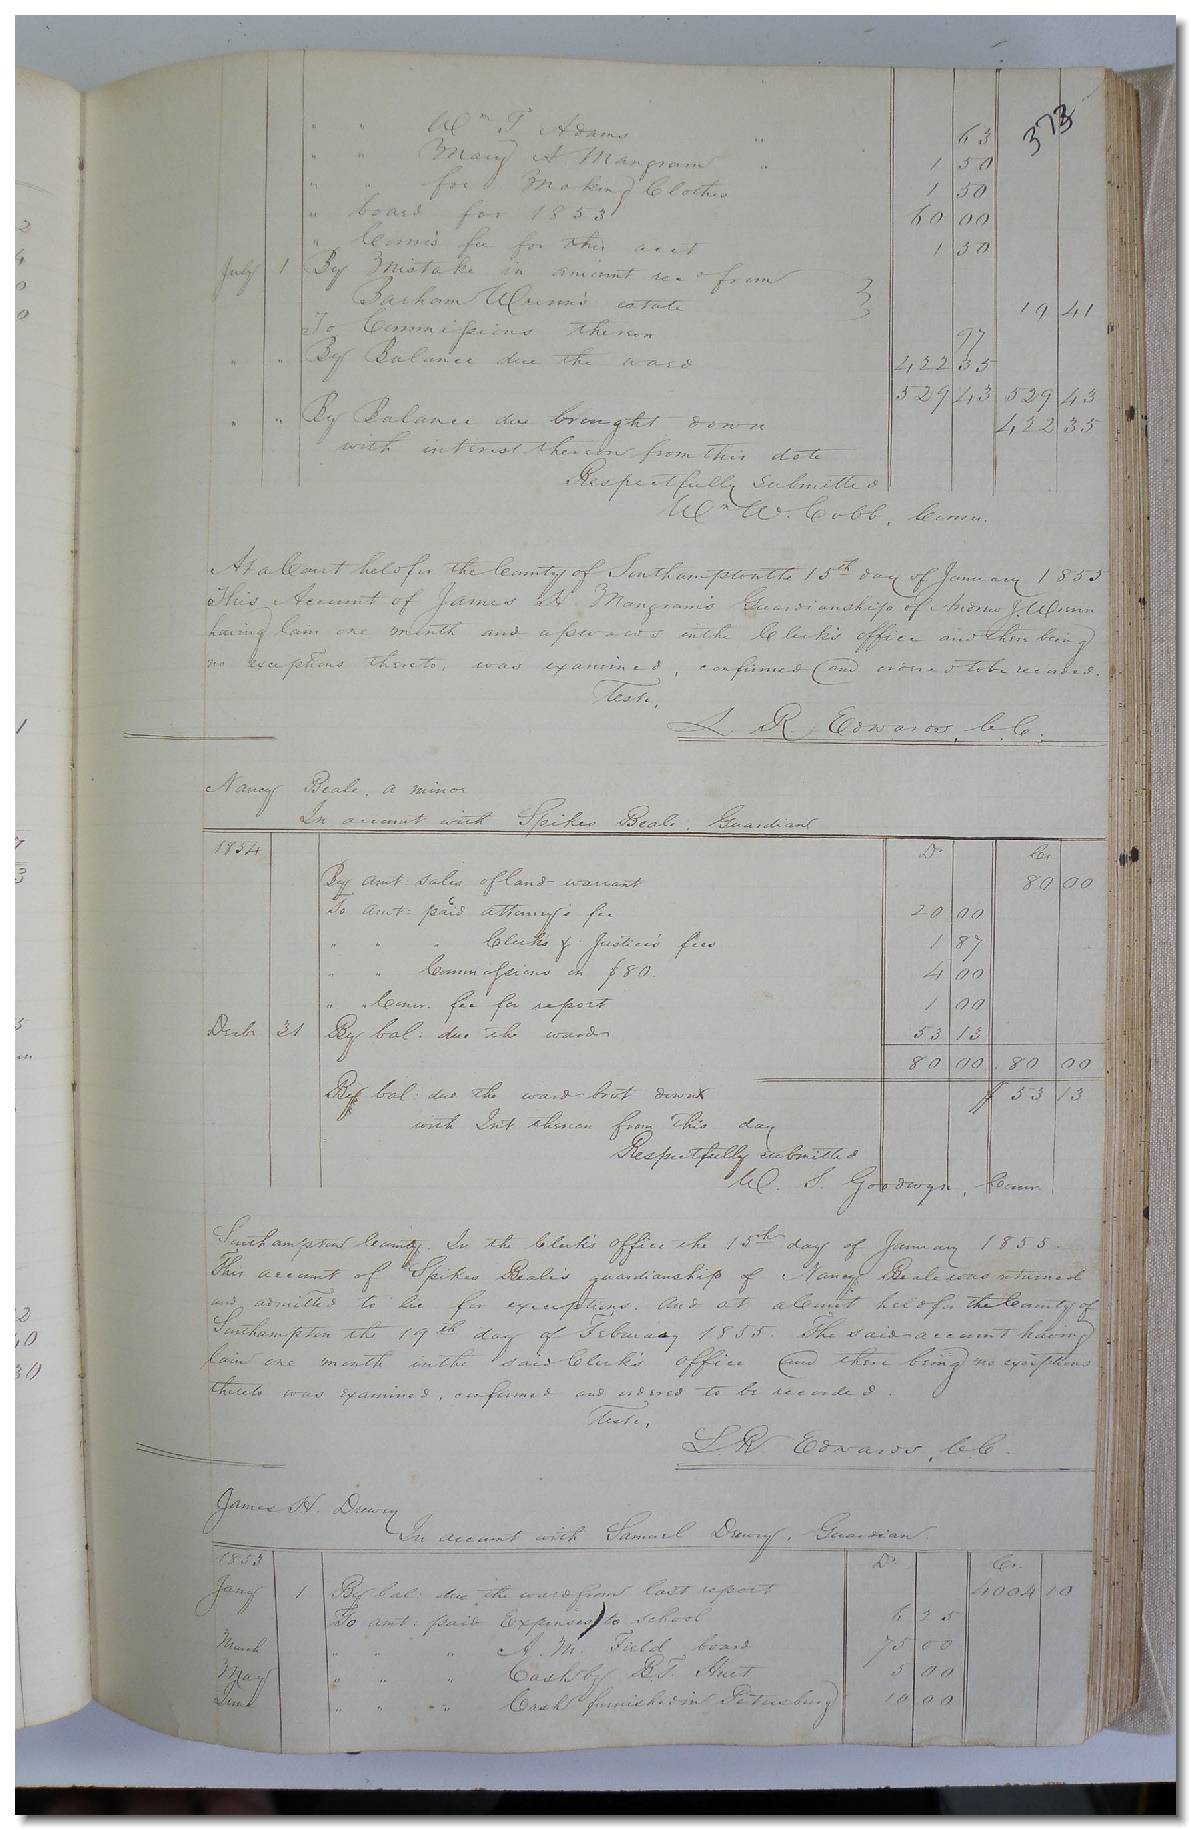 373
" " Wm T Adams " 63
" " Mary A Mangram " 1 50
" " for Making Clothes 1 50
" board for 1853 60 00
" Comr's fee for this acct 1 50
July 1 By Mistake in amount recd from
Barham Wrenn's estate 19 41
To Commissions thereon 97
" " By Balance due the ward 422 35
529 43 529 43
" " By Balance due brought down 422 35
with interest thereon from this date
Respectfully Submitted
Wm W. Cobb, Comr.
At a Court held for the County of Southampton the 15th day of January 1855
This Account of James A Mangram's Guardianship of Andrew J. Wrenn
having lain one month and upwards in the Clerk's office and there being
no exceptions thereto, was examined, confirmed and ordered to be recorded.
Teste,
L R Edwards, C.C.
Nancy Beale, a minor
In account with Spikes Beale, Guardian
1854 Dr Cr
By amt sales of land warrant 80 00
To amt: paid attorney's fee 20 00
" " " Clerk's & Justice's fees 1 87
" " Commissions on $80. 4 00
" " Comr. fee for report 1 00
Decb 31 By bal: due the ward 53 13
80 00 80 00
By bal: due the ward brot down $ 53 13
with Int thereon from this day
Respectfully submitted
W. S. Goodwyn, Comr.
Southampton County. In the Clerk's office the 15th day of January 1855.
This account of Spikes Beale's guardianship of Nancy Beale was returned
and admitted to lie for exceptions. And at a Court held for the County of
Southampton the 19th day of Febuary 1855. The said account having
lain one month in the said Clerk's office and there being no exceptions
thereto was examined, confirmed and ordered to be recorded.
Teste,
L. R Edwards, C.C.
James H. Drewry
In account with Samuel Drewry, Guardian
1853 Dr Cr.
Jany 1 By bal: due the ward from last report 4004 10
To amt: paid Expenses to school 6 25
March " " " A. M. Field board 75 00
May " " " Cash by B. T. 5 00
June " " " " Cash furnished in Petersburg 10 00